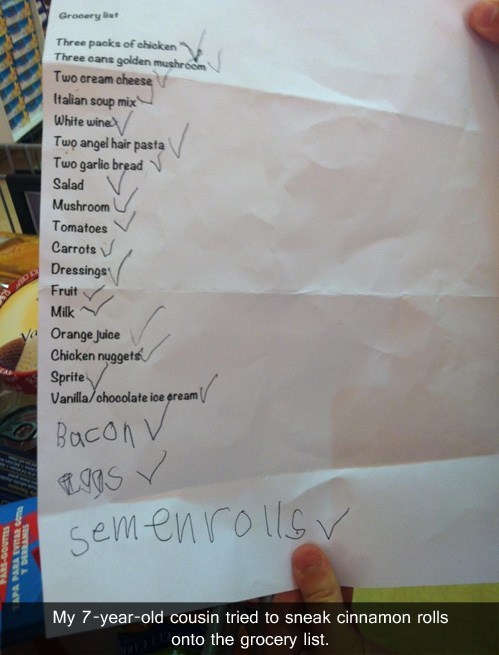 Grocery list
Three packs of chicken
Three cans golden mushroom
Two cream cheese
Italian soup mix
White wine
Two angel hair pasta
Two garlic bread
Salad
Mushroom
Tomatoes
Carrots
Dressings
Fruit
Milk
Orange juice
Chicken nuggets
Sprite
Vanilla/chocolate ice cream
Bacon
eggs
semenrolls
PARE-GOUTTES
TAPA PARA EVITAR GOTEO
Y DERRAMES
My 7-year-old cousin tried to sneak cinnamon rolls
onto the grocery list.